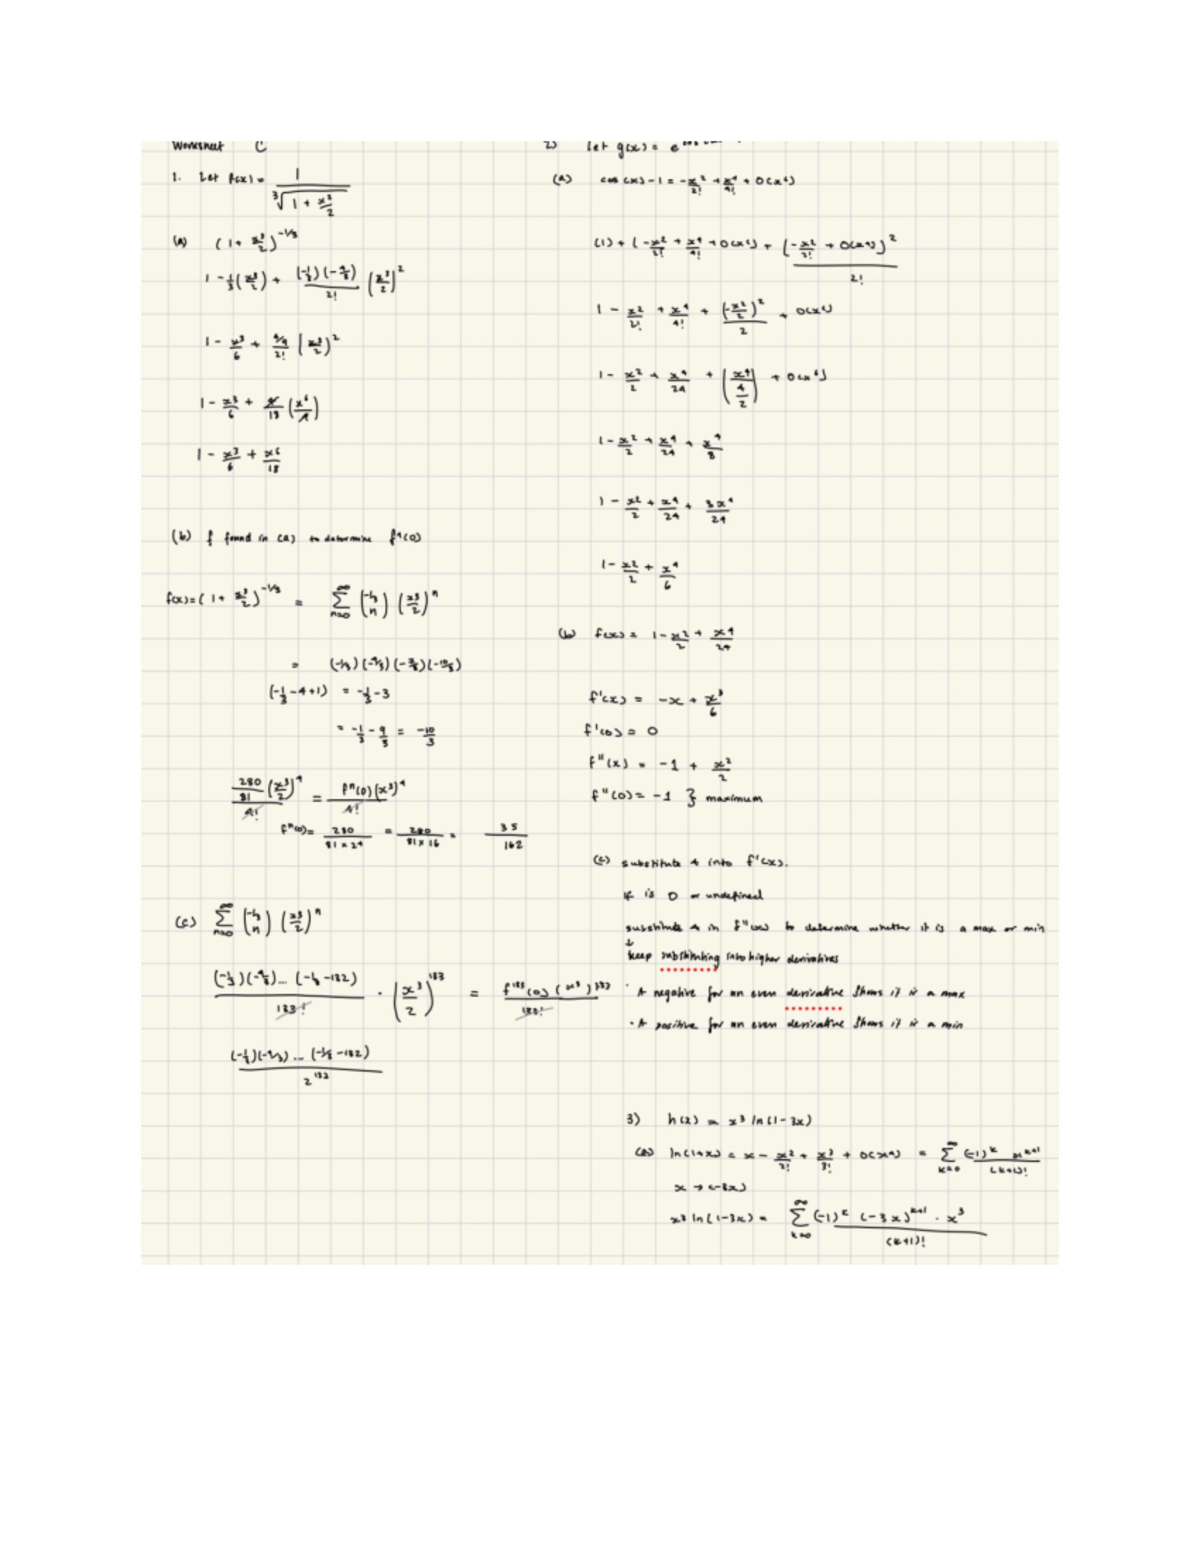 Worksheet C
1. Let f(x) = 1 / ∛(1 + x³/2)
(a) (1 + x³/2)^(-1/3)
1 - 1/3 (x³/2) + (-1/3)(-4/3)/2! (x³/2)²
1 - x³/6 + 4/9/2! (x³/2)²
1 - x³/6 + 4/18 (x⁶/4)
1 - x³/6 + x⁶/18
(b) f found in (a) to determine f⁴(0)
f(x) = (1 + x³/2)^(-1/3) = ∞ Σ n=0 (-1/3 n) (x³/2)ⁿ
= (-1/3)(-4/3)(-7/3)(-10/3)
(-1/3 - 4 + 1) = -1/3 - 3
= -1/3 - 9/3 = -10/3
280/81/4! (x³/2)⁴ = fⁿ(0)(x³)⁴/4!
fⁿ(0) = 280/81×2⁴ = 280/81×16 = 35/162
(c) ∞ Σ n=0 (-1/3 n) (x³/2)ⁿ
(-1/3)(-4/3)... (-1/3 - 132)/133! · (x³/2)^133 = f^133(0) (x³)^133/133!
(-1/3)(-4/3)... (-1/3 - 132)/2^133
2) Let g(x) = e
(a) cos(x) - 1 = -x²/2! + x⁴/4! + O(x⁶)
(1) + (-x²/2! + x⁴/4! + O(x⁶) + (-x²/2! + O(x⁴))²/2!
1 - x²/2! + x⁴/4! + (-x²/2)²/2 + O(x⁶)
1 - x²/2 + x⁴/24 + (x⁴/4/2) + O(x⁶)
1 - x²/2 + x⁴/24 + x⁴/8
1 - x²/2 + x⁴/24 + 3x⁴/24
1 - x²/2 + x⁴/6
(b) f(x) = 1 - x²/2 + x⁴/24
f'(x) = -x + x³/6
f'(0) = 0
f''(x) = -1 + x²/2
f''(0) = -1 } maximum
(c) substitute a into f'(x).
if is 0 or undefined
substitute a in f''(x) to determine whether it is a max or min
↓
keep substituting into higher derivatives
· A negative for an even derivative shows it is a max
· A positive for an even derivative shows it is a min
3) h(x) = x³ ln(1-3x)
(a) ln(1+x) = x - x²/2! + x³/3! + O(x⁴) = ∞ Σ k=0 (-1)^k x^(k+1)/(k+1)!
x → (-3x)
x³ ln(1-3x) = ∞ Σ k=0 (-1)^k (-3x)^(k+1) · x³/(k+1)!